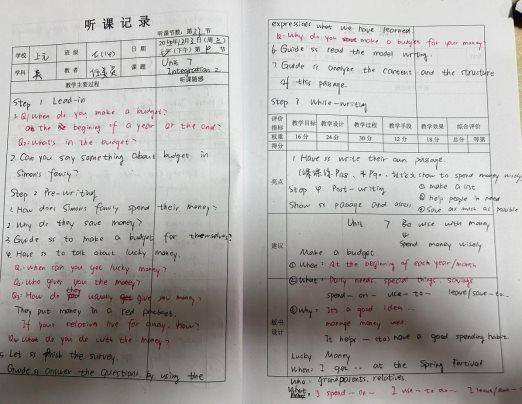 听课记录
听课节数: 第23节
学校 上元 班级 七(14) 日期 2015年12月3日(周三)
(下午) 第 节
学科 英 教者 课题 Unit 7
Integration 2
教学主要过程 听课随感
Step 1 Lead-in
1. Q1: When do you make a budget?
at the begining of a year or the end?
Q2: What's in the budget?
2. Can you say something about budget in
Simon's family?
Step 2 Pre-writing
1. How does Simon's family spend their money?
2. Why do they save money?
3. Guide ss to make a budget for themselves?
4. Have ss to talk about lucky money.
Q1: When can you get lucky money?
Q2: Who gives you the money?
Q3: How do they usually give you money?
They put money in a red pocket.
If your relative live far away. How?
Q4: What do you do with the money?
5. Let ss finish the survey.
Guide ss answer the questions by using the
expressions what we have learned.
Q: Why do you make a budget for your money?
6. Guide ss read the model writing.
7. Guide ss analyze the content and the structure
of this passage.
Step 3 While-writing
评价指标 教学目标 教学设计 教学过程 教学手段 教学效果 综合评价
权重 16分 24分 30分 12分 18分 总分 等第
得分
亮点
1. Have ss write their own passage.
How to spend money wisely
Step 4 Post-writing ① make a list
② help people in need
Show ss passage and assess ③ save as much as possible
建议
Unit 7 Be wise with money
&
Spend money wisely
Make a budget
① When: At the beginning of each year/month
② What: Daily needs special things. savings
spend-on- use-to- leave/save-to..
板书设计
③ Why: It's a good idea..
manage money well.
It helps - (to) have a good spending habit.
Lucky Money
When: I get .. at the Spring Fertival
Who: grandparents, relatives
What: I spend-on- I use-to-do- I leave/save-